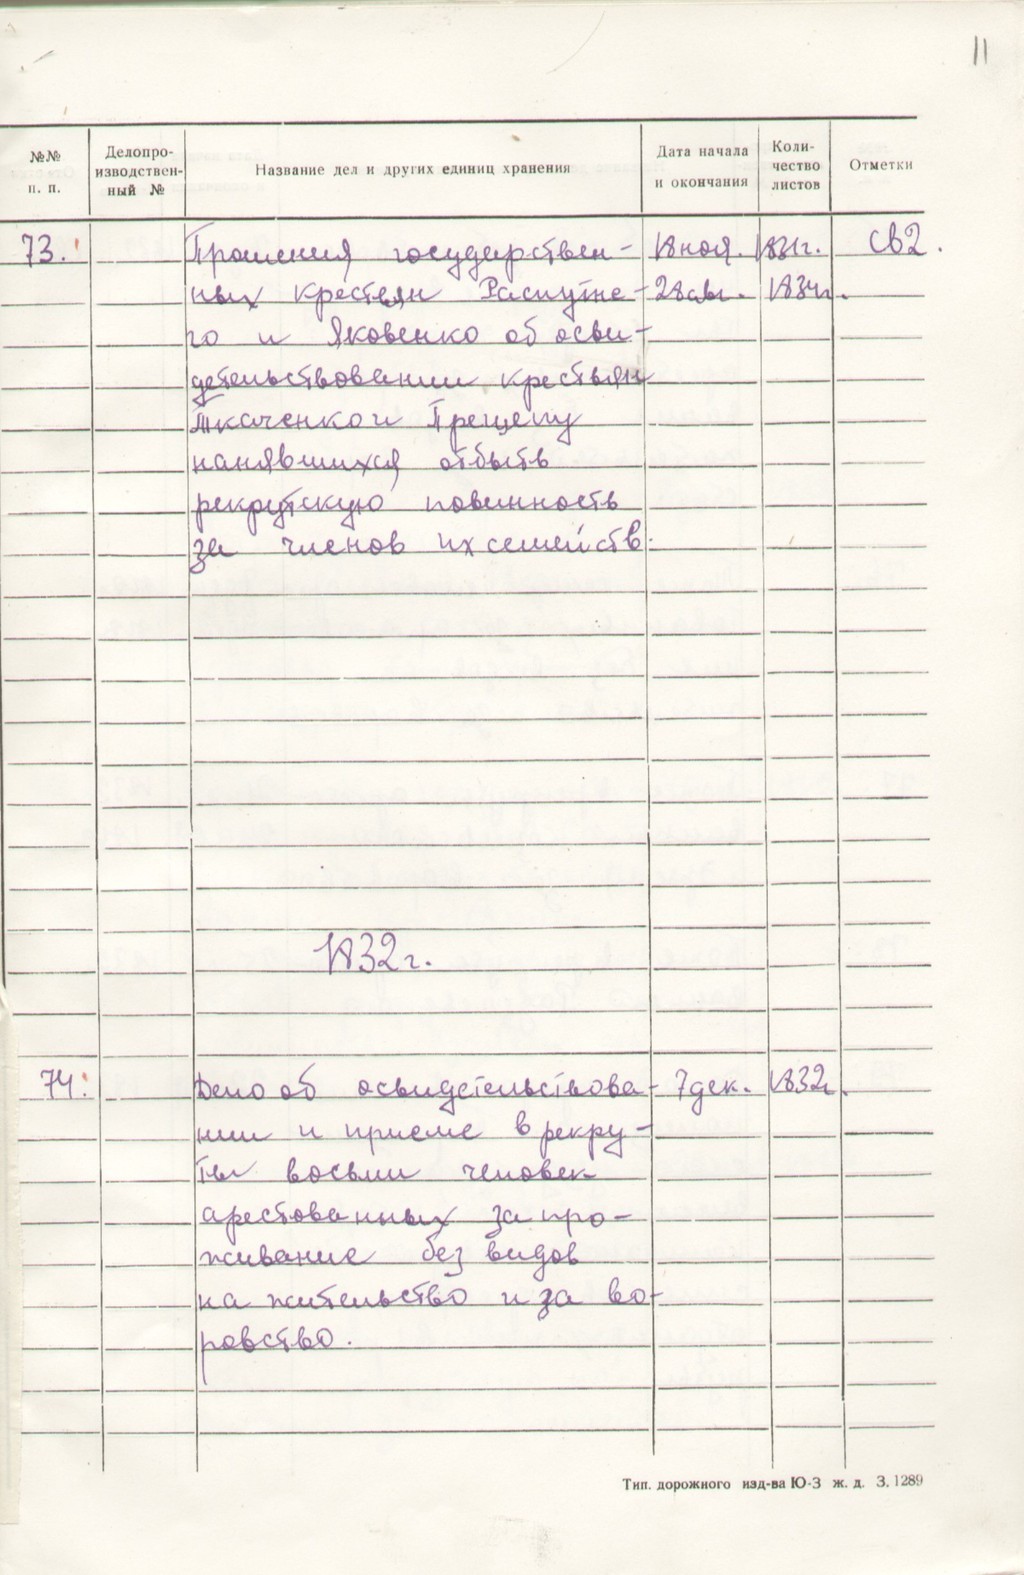 11
№№ п. п. Делопроизводственный № Название дел и других единиц хранения Дата начала и окончания Количество листов Отметки
73. Прошения государствен- 18 ноя. 1831г. св2.
ных крестьян Распутне- 28 авг. 1834г.
го и Яковенко об осви-
детельствовании крестьян
Ткаченко и Прещепу
нанявшихся отбыть
рекрутскую повинность
за членов их семейств.
1832г.
74. Дело об освидетельствова- 7 дек. 1832г.
нии и приеме в рекру-
ты восьми человек
арестованных за про-
живание без видов
на жительство и за во-
ровство.
Тип. дорожного изд-ва Ю-З ж. д. З. 1289